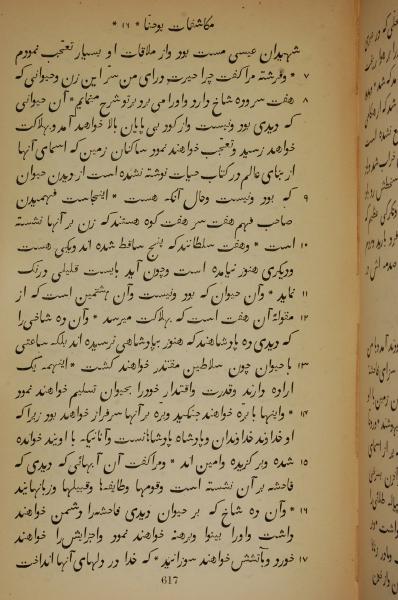 مکاشفات یوحنا * ۱۶ *
شهیدان عیسی مست بود واز ملاقات او بسیار تعجب نمودم
۷ * وفرشته مرا گفت چرا حیرت دراى من سر این زن وحیوانی که
هفت سر وده شاخ دارد واورا می برد بر تو شرح مینمایم * آن حیوانی ۸
که دیدی بود ونیست واز کود بی پایان بالا خواهد آمد وبهلاکت
خواهد رسید وتعجب خواهند نمود ساکنان زمین که اسمای آنها
از بنای عالم در کتاب حیات نوشته نشده است از دیدن حیوان
۹ که بود ونیست وحال آنکه هست * اینجاست فهمیدن
صاحب فهم هفت سر هفت کوه هستند که زن بر آنها نشسته
۱۰ است * وهفت سلطانند که پنج ساقط شده اند ویکی هست
ودیگری هنوز نیامده است وچون آید بایست قلیلی درنگ
۱۱ نماید * وآن حیوان که بود ونیست وآن هشتمین است که از
۱۲ مقوله آن هفت است که بهلاکت میرسد * وآن ده شاخی را
که دیدی ده پادشاهند که هنوز بپادشاهی نرسیده اند بلکه ساعتی
۱۳ با حیوان چون سلاطین مقتدر خواهند گشت * اینهمه یک
اراده دارند وقدرت واقتدار خودرا بحیوان تسلیم خواهند نمود
۱۴ * واینها با بره خواهند جنگید وبره بر آنها سرفراز خواهد بود زیرا که
او خداوند خداوندان وپادشاه پادشاهانست وآنانیکه با اویند خوانده
۱۵ شده وبرگزیده وامین اند * ومرا گفت آن آبهائی که دیدی که
فاحشه بر آن نشسته است وقومها وطایفه‌ها وقبیلها وزبانهایند
۱۶ * وآن ده شاخ که بر حیوان دیدی فاحشه‌را دشمن خواهند
داشت واورا بینوا وبرهنه خواهند نمود واجزایش را خواهند
۱۷ خورد وبآتشش خواهند سوزانید * که خدا در دلهای آنها انداخت
617